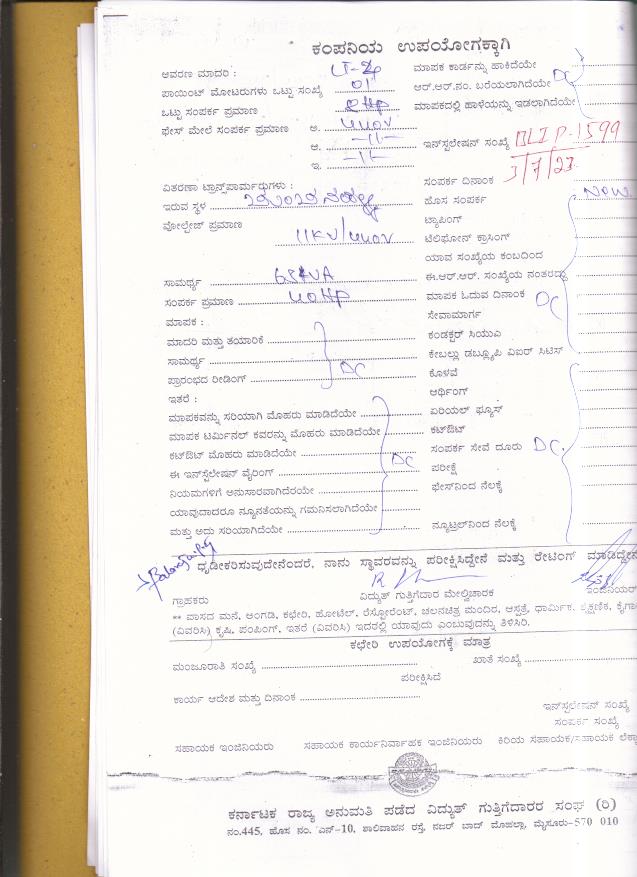 ಕಂಪನಿಯ ಉಪಯೋಗಕ್ಕಾಗಿ
ಆವರಣ ಮಾದರಿ :
ಮಾಪಕ ಕಾರ್ಡನ್ನು ಹಾಕಿದೆಯೇ
ಪಾಯಿಂಟ್ ಮೋಟರುಗಳು ಒಟ್ಟು ಸಂಖ್ಯೆ 01
ಆರ್.ಆರ್.ನಂ. ಬರೆಯಲಾಗಿದೆಯೇ DC
ಒಟ್ಟು ಸಂಪರ್ಕ ಪ್ರಮಾಣ
ಮಾಪಕದಲ್ಲಿ ಹಾಳೆಯನ್ನು ಇಡಲಾಗಿದೆಯೇ
ಫೇಸ್ ಮೇಲೆ ಸಂಪರ್ಕ ಪ್ರಮಾಣ ಅ. 440V
ಆ. -11-
ಇನ್‌ಸ್ಟಲೇಷನ್ ಸಂಖ್ಯೆ BLIP-1599
ಇ. -11-
3/7/23
ವಿತರಣಾ ಟ್ರಾನ್ಸ್‌ಫಾರ್ಮರುಗಳು :
ಸಂಪರ್ಕ ದಿನಾಂಕ
ಇರುವ ಸ್ಥಳ
ಹೊಸ ಸಂಪರ್ಕ New
ವೋಲ್ಟೇಜ್ ಪ್ರಮಾಣ 11KV/440V
ಟ್ಯಾಪಿಂಗ್
ಟೆಲಿಫೋನ್ ಕ್ರಾಸಿಂಗ್
ಯಾವ ಸಂಖ್ಯೆಯ ಕಂಬದಿಂದ
ಸಾಮರ್ಥ್ಯ
ಈ.ಆರ್.ಆರ್. ಸಂಖ್ಯೆಯ ನಂತರದ್ದು
ಸಂಪರ್ಕ ಪ್ರಮಾಣ 40HP
ಮಾಪಕ ಓದುವ ದಿನಾಂಕ DC
ಮಾಪಕ :
ಸೇವಾಮಾರ್ಗ
ಮಾದರಿ ಮತ್ತು ತಯಾರಿಕೆ
ಕಂಡಕ್ಟರ್ ಸಿಯುಎ
ಸಾಮರ್ಥ್ಯ DC
ಕೇಬಲ್ಲು ಡಬ್ಲ್ಯೂಪಿ ವಿಐಆರ್ ಸಿಟಿಸ್
ಪ್ರಾರಂಭದ ರೀಡಿಂಗ್
ಕೊಳವೆ
ಇತರೆ :
ಅರ್ಥಿಂಗ್
ಮಾಪಕವನ್ನು ಸರಿಯಾಗಿ ಮೊಹರು ಮಾಡಿದೆಯೇ
ಏರಿಯಲ್ ಫ್ಯೂಸ್
ಮಾಪಕ ಟರ್ಮಿನಲ್ ಕವರನ್ನು ಮೊಹರು ಮಾಡಿದೆಯೇ
ಕಟ್‌ಔಟ್
ಕಟ್‌ಔಟ್ ಮೊಹರು ಮಾಡಿದೆಯೇ DC
ಸಂಪರ್ಕ ಸೇವೆ ದೂರು DC.
ಈ ಇನ್‌ಸ್ಟಲೇಷನ್ ವೈರಿಂಗ್
ಪರೀಕ್ಷೆ
ನಿಯಮಗಳಿಗೆ ಅನುಸಾರವಾಗಿದೆರಯೇ
ಫೇಸ್‌ನಿಂದ ನೆಲಕ್ಕೆ
ಯಾವುದಾದರೂ ನ್ಯೂನತೆಯನ್ನು ಗಮನಿಸಲಾಗಿದೆಯೇ
ಮತ್ತು ಅದು ಸರಿಯಾಗಿದೆಯೇ
ನ್ಯೂಟ್ರಲ್‌ನಿಂದ ನೆಲಕ್ಕೆ
ದೃಡೀಕರಿಸುವುದೇನೆಂದರೆ, ನಾನು ಸ್ಥಾವರವನ್ನು ಪರೀಕ್ಷಿಸಿದ್ದೇನೆ ಮತ್ತು ರೇಟಿಂಗ್ ಮಾಡಿದ್ದೇನೆ
ಗ್ರಾಹಕರು ವಿದ್ಯುತ್ ಗುತ್ತಿಗೆದಾರ ಮೇಲ್ವಿಚಾರಕ ಇಂಜಿನಿಯರ್
** ವಾಸದ ಮನೆ, ಅಂಗಡಿ, ಕಛೇರಿ, ಹೋಟೆಲ್, ರೆಸ್ಟೋರೆಂಟ್, ಚಲನಚಿತ್ರ ಮಂದಿರ, ಆಸ್ಪತ್ರೆ, ಧಾರ್ಮಿಕ, ಶೈಕ್ಷಣಿಕ, ಕೈಗಾ
(ವಿವರಿಸಿ) ಕೃಷಿ, ಪಂಪಿಂಗ್, ಇತರೆ (ವಿವರಿಸಿ) ಇದರಲ್ಲಿ ಯಾವುದು ಎಂಬುವುದನ್ನು ತಿಳಿಸಿರಿ.
ಕಛೇರಿ ಉಪಯೋಗಕ್ಕೆ ಮಾತ್ರ
ಮಂಜೂರಾತಿ ಸಂಖ್ಯೆ ಖಾತೆ ಸಂಖ್ಯೆ
ಪರೀಕ್ಷಿಸಿದೆ
ಕಾರ್ಯ ಆದೇಶ ಮತ್ತು ದಿನಾಂಕ
ಇನ್‌ಸ್ಟಲೇಷನ್ ಸಂಖ್ಯೆ
ಸಂಪರ್ಕ ಸಂಖ್ಯೆ
ಸಹಾಯಕ ಇಂಜಿನಿಯರು ಸಹಾಯಕ ಕಾರ್ಯನಿರ್ವಾಹಕ ಇಂಜಿನಿಯರು ಕಿರಿಯ ಸಹಾಯಕ/ಸಹಾಯಕ ಲೆಕ್ಕಾ
ಕರ್ನಾಟಕ ರಾಜ್ಯ ಅನುಮತಿ ಪಡೆದ ವಿದ್ಯುತ್ ಗುತ್ತಿಗೆದಾರರ ಸಂಘ (ರಿ)
ನಂ.445, ಹೊಸ ನಂ. ಎನ್-10, ಶಾಲಿವಾಹನ ರಸ್ತೆ, ನಜರ್ ಬಾದ್ ಮೊಹಲ್ಲಾ, ಮೈಸೂರು-570 010